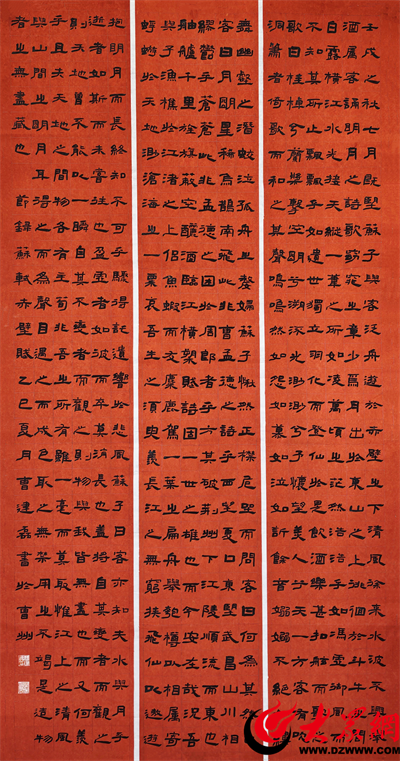 壬戌之秋七月既望蘇子與客泛舟遊於赤壁之下清風徐來水波不興舉
酒屬客誦明月之詩歌窈窕之章少焉月出於東山之上徘徊於斗牛之間
白露橫江水光接天縱一葦之所如凌萬頃之茫然浩浩乎如馮虛御風而
不知其所止飄飄乎如遺世獨立羽化而登仙於是飲酒樂甚扣舷而歌之
歌曰桂棹兮蘭槳擊空明兮溯流光渺渺兮予懷望美人兮天一方客有吹
洞簫者倚歌而和之其聲嗚嗚然如怨如慕如泣如訴餘音嫋嫋不絕如縷
舞幽壑之潛蛟泣孤舟之嫠婦蘇子愀然正襟危坐而問客曰何為其然也
客曰月明星稀烏鵲南飛此非曹孟德之詩乎西望夏口東望武昌山川相
繆鬱乎蒼蒼此非孟德之困於周郎者乎方其破荊州下江陵順流而東也
舳艫千里旌旗蔽空釃酒臨江橫槊賦詩固一世之雄也而今安在哉況吾
與子漁樵於江渚之上侶魚蝦而友麋鹿駕一葉之扁舟舉匏樽以相屬寄
蜉蝣於天地渺滄海之一粟哀吾生之須臾羨長江之無窮挾飛仙以遨遊
抱明月而長終知不可乎驟得託遺響於悲風蘇子曰客亦知夫水與月乎
逝者如斯而未嘗往也盈虛者如彼而卒莫消長也蓋將自其變者而觀之
則天地曾不能以一瞬自其不變者而觀之則物與我皆無盡也而又何羨
乎且夫天地之間物各有主苟非吾之所有雖一毫而莫取惟江上之清風
與山間之明月耳得之而為聲目遇之而成色取之無禁用之不竭是造物
者之無盡藏也 節錄蘇軾赤壁賦乙巳夏月曹建磊書於曹州
大众网
www.dzwww.com